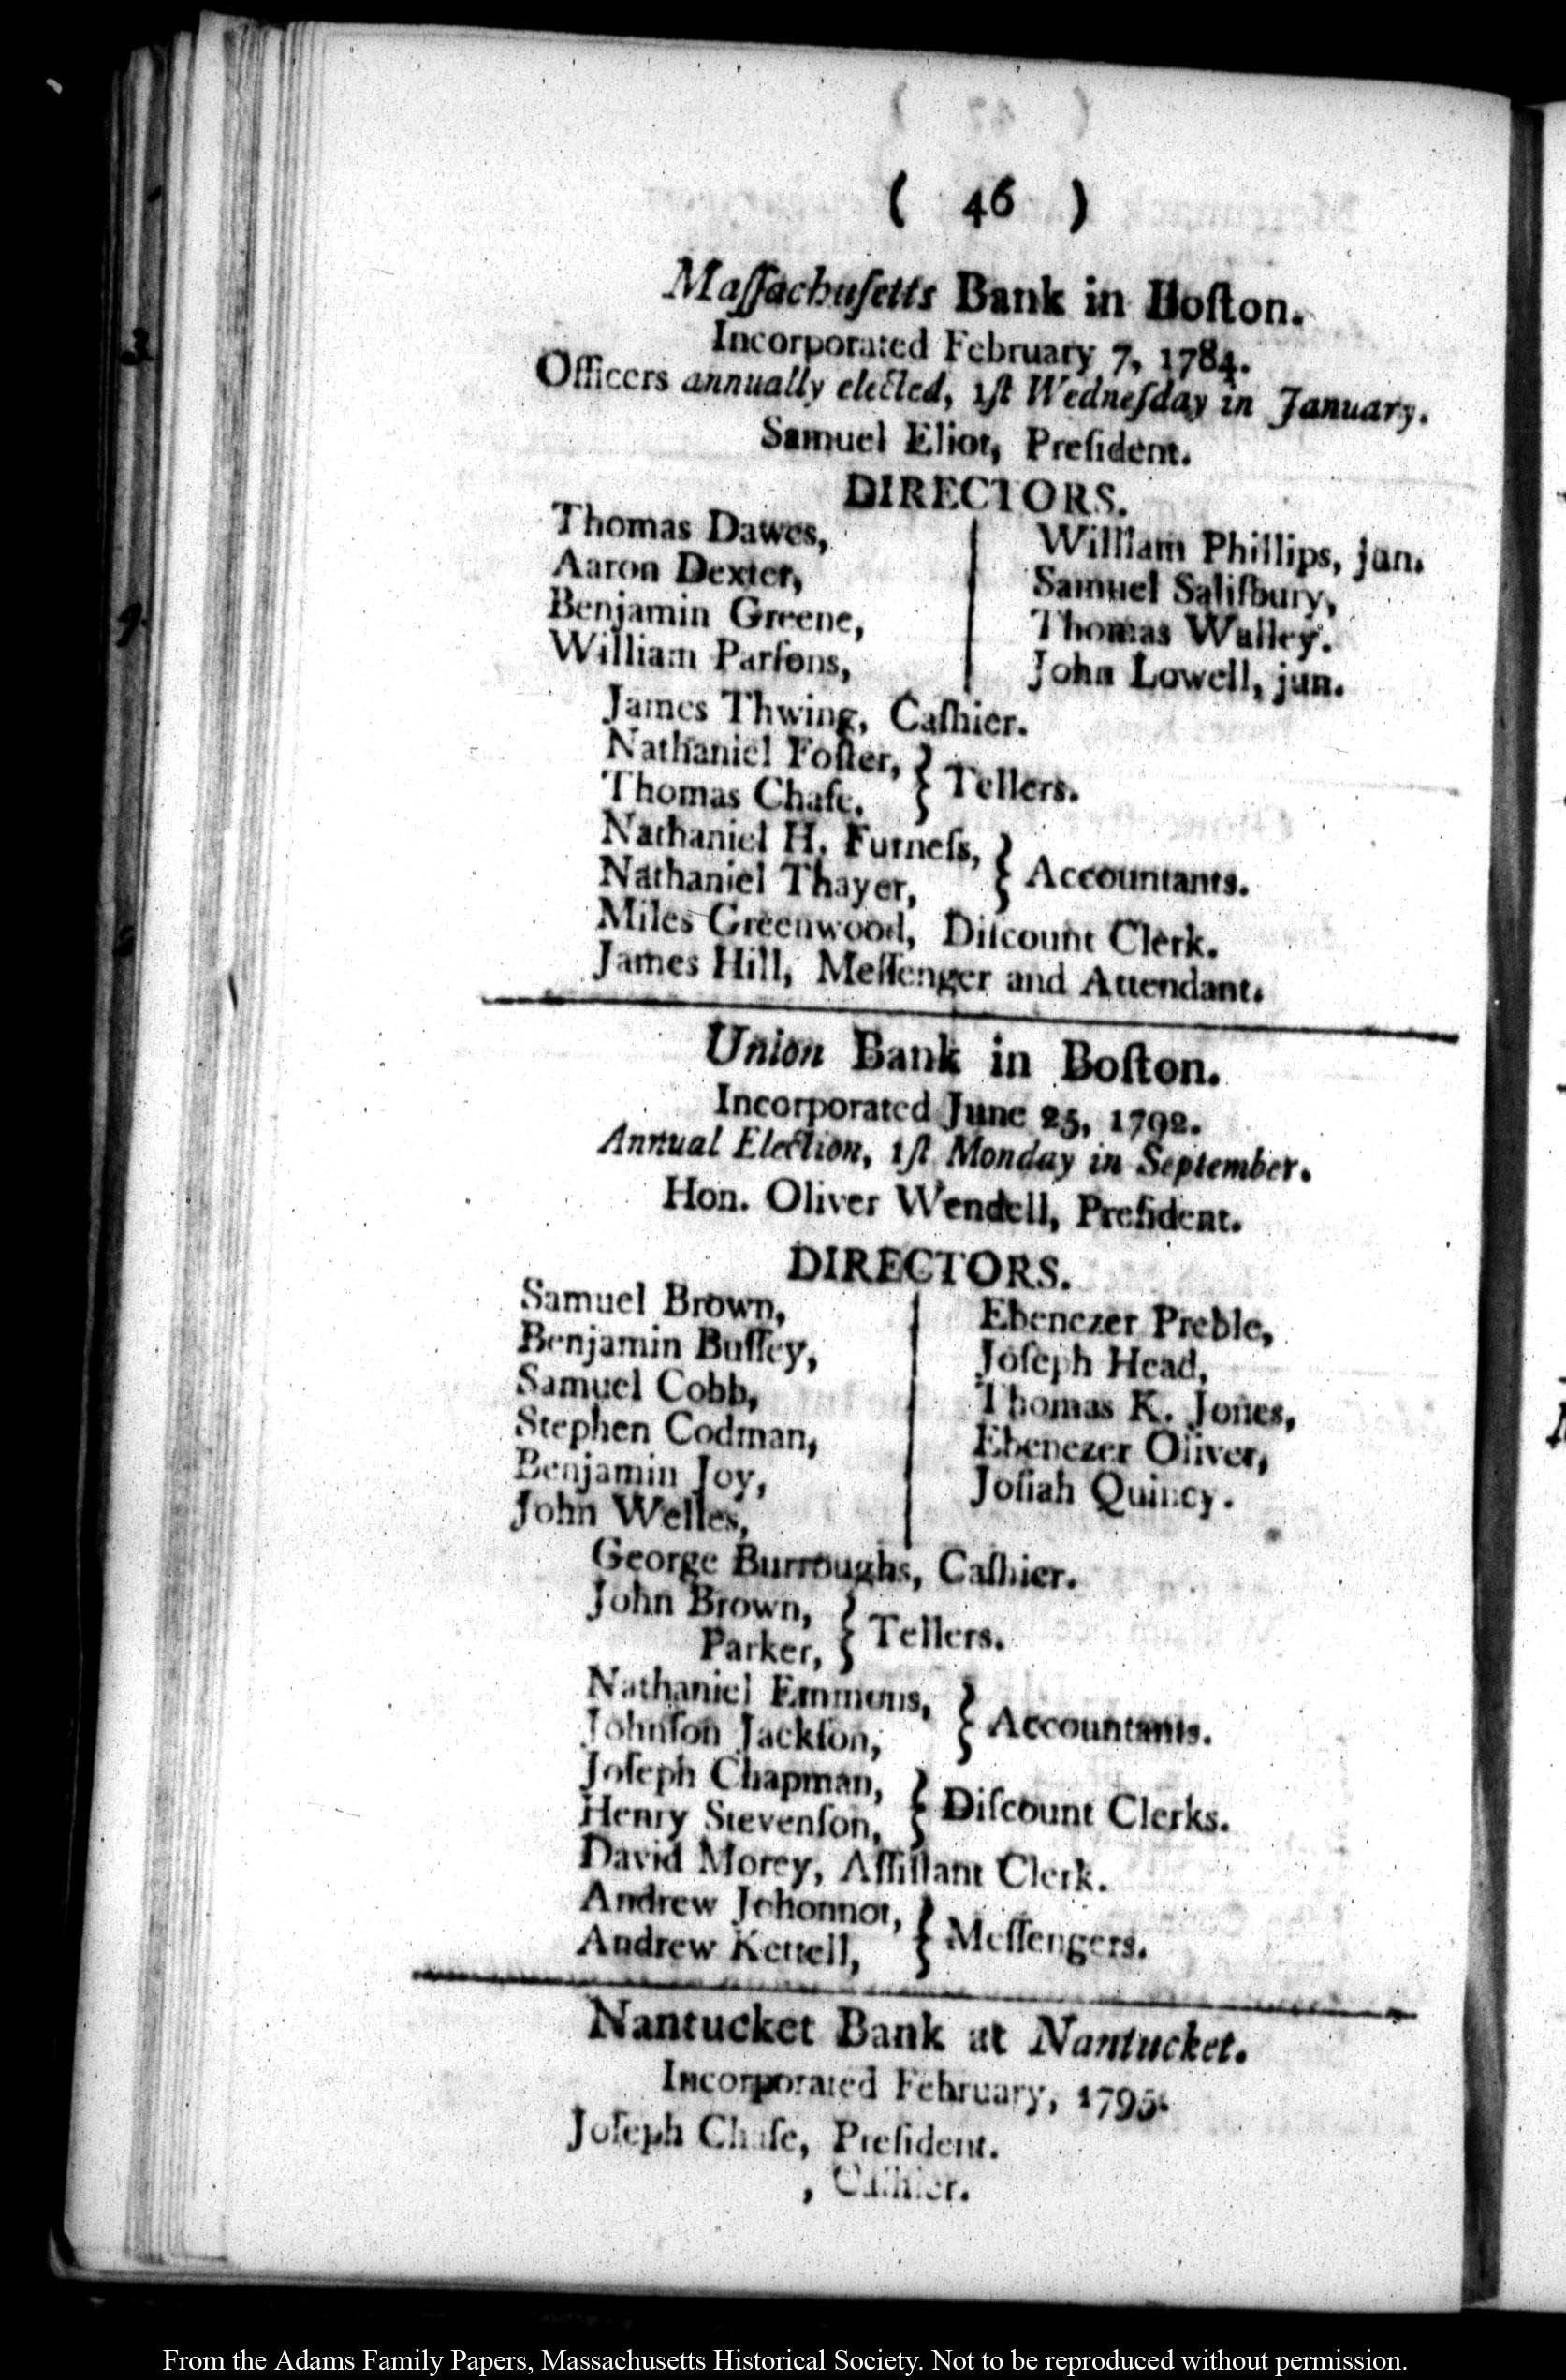 ( 46 )
Maſſachuſetts Bank in Boſton.
Incorporated February 7, 1784.
Officers annually elected, 1ſt Wedneſday in January.
Samuel Eliot, Preſident.
DIRECTORS.
Thomas Dawes,
Aaron Dexter,
Benjamin Greene,
William Parſons,
William Phillips, jun.
Samuel Saliſbury,
Thomas Walley.
John Lowell, jun.
James Thwing, Caſhier.
Nathaniel Foſter, } Tellers.
Thomas Chaſe.
Nathaniel H. Furneſs, } Accountants.
Nathaniel Thayer,
Miles Greenwood, Diſcount Clerk.
James Hill, Meſſenger and Attendant.
Union Bank in Boſton.
Incorporated June 25, 1792.
Annual Election, 1ſt Monday in September.
Hon. Oliver Wendell, Preſident.
DIRECTORS.
Samuel Brown,
Benjamin Buſſey,
Samuel Cobb,
Stephen Codman,
Benjamin Joy,
John Welles,
Ebenezer Preble,
Joſeph Head,
Thomas K. Jones,
Ebenezer Oliver,
Joſiah Quincy.
George Burroughs, Caſhier.
John Brown, } Tellers.
Parker,
Nathaniel Emmons, } Accountants.
Johnſon Jackſon,
Joſeph Chapman, } Diſcount Clerks.
Henry Stevenſon,
David Morey, Aſſiſtant Clerk.
Andrew Johonnot, } Meſſengers.
Andrew Kettell,
Nantucket Bank at Nantucket.
Incorporated February, 1795.
Joſeph Chaſe, Preſident.
, Caſhier.
From the Adams Family Papers, Massachusetts Historical Society. Not to be reproduced without permission.